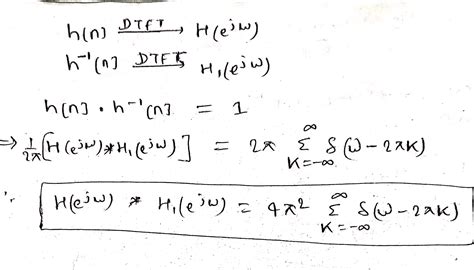 h[n] DTFT → H(e^jω)
h⁻¹[n] DTFT → H₁(e^jω)
h[n] · h⁻¹[n] = 1
⇒ 1/2π [H(e^jω) * H₁(e^jω)] = 2π Σ_{K=-∞}^{∞} δ(ω - 2πK)
∴ H(e^jω) * H₁(e^jω) = 4π² Σ_{K=-∞}^{∞} δ(ω - 2πK)